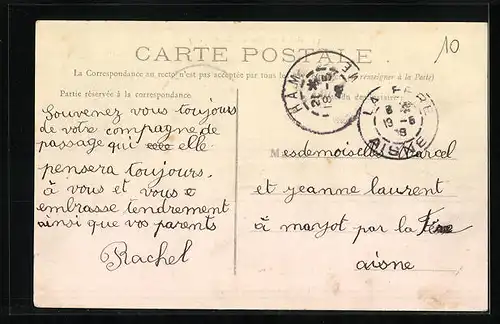 10
CARTE POSTALE
La Correspondance au recto n'est pas acceptée par tous les renseigner à la Poste)
Partie réservée à la correspondance
HAM
LA FERE
AISNE
Souvenez vous toujours
de votre compagne de
passage qui elle
pensera toujours
à vous et vous
embrasse tendrement
ainsi que vos parents
Rachel
Mesdemoiselles Marcel
et Jeanne Laurent
à mayot par la Fère
aisne